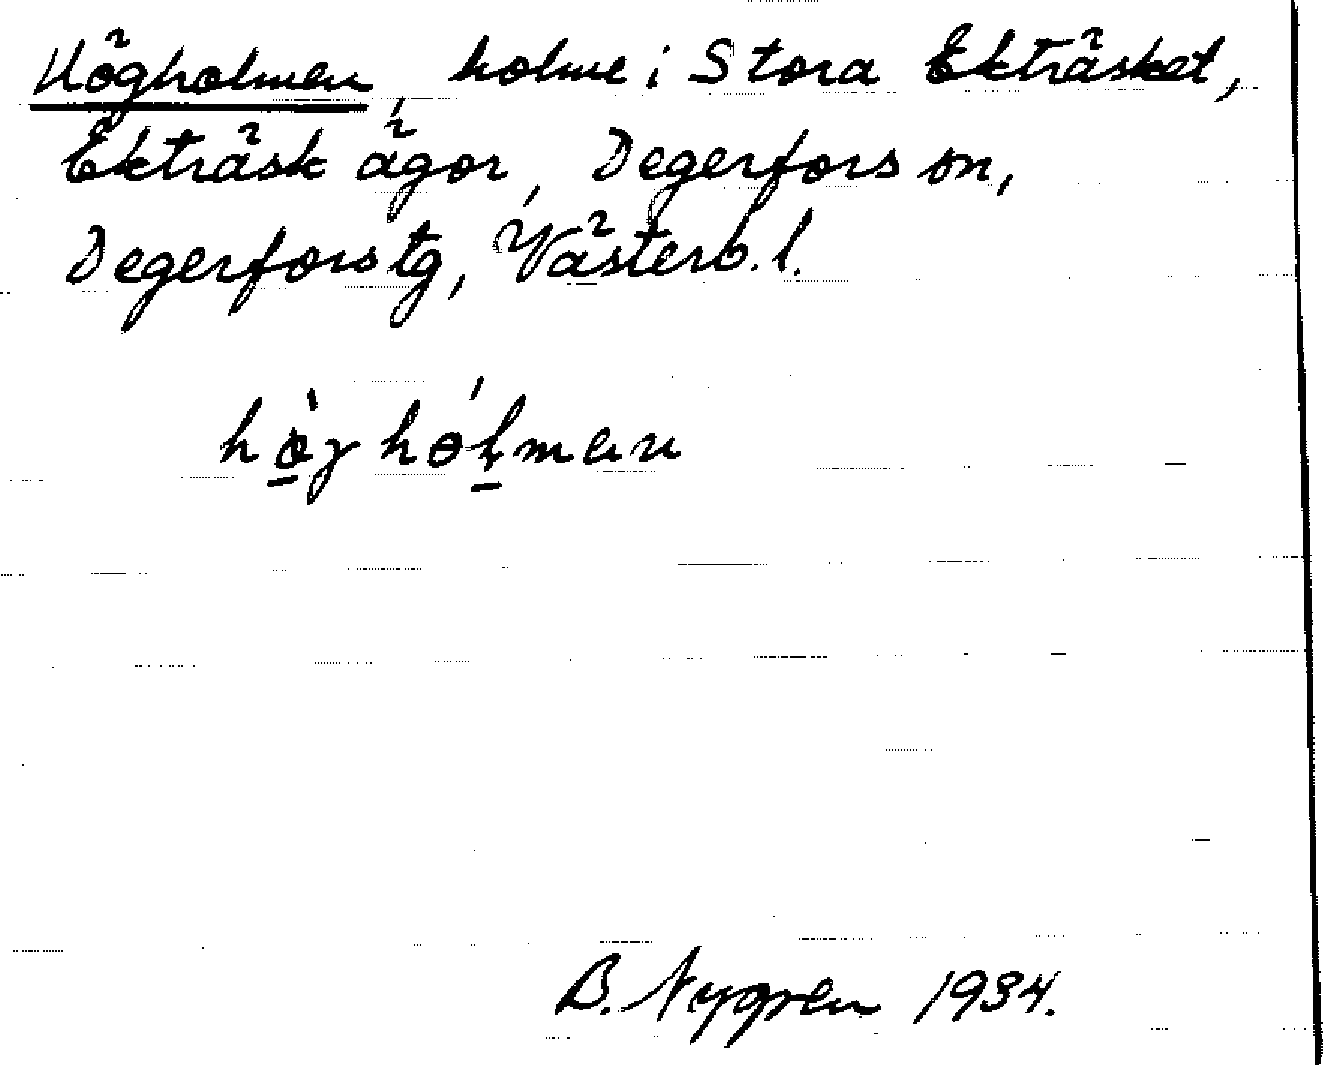 Högholmen, holme i Stora Ekträsket,
Ekträsk ägor, Degerfors sn,
Degerfors tg, Västerb. l.
höghólmen
B. Nygren 1934.